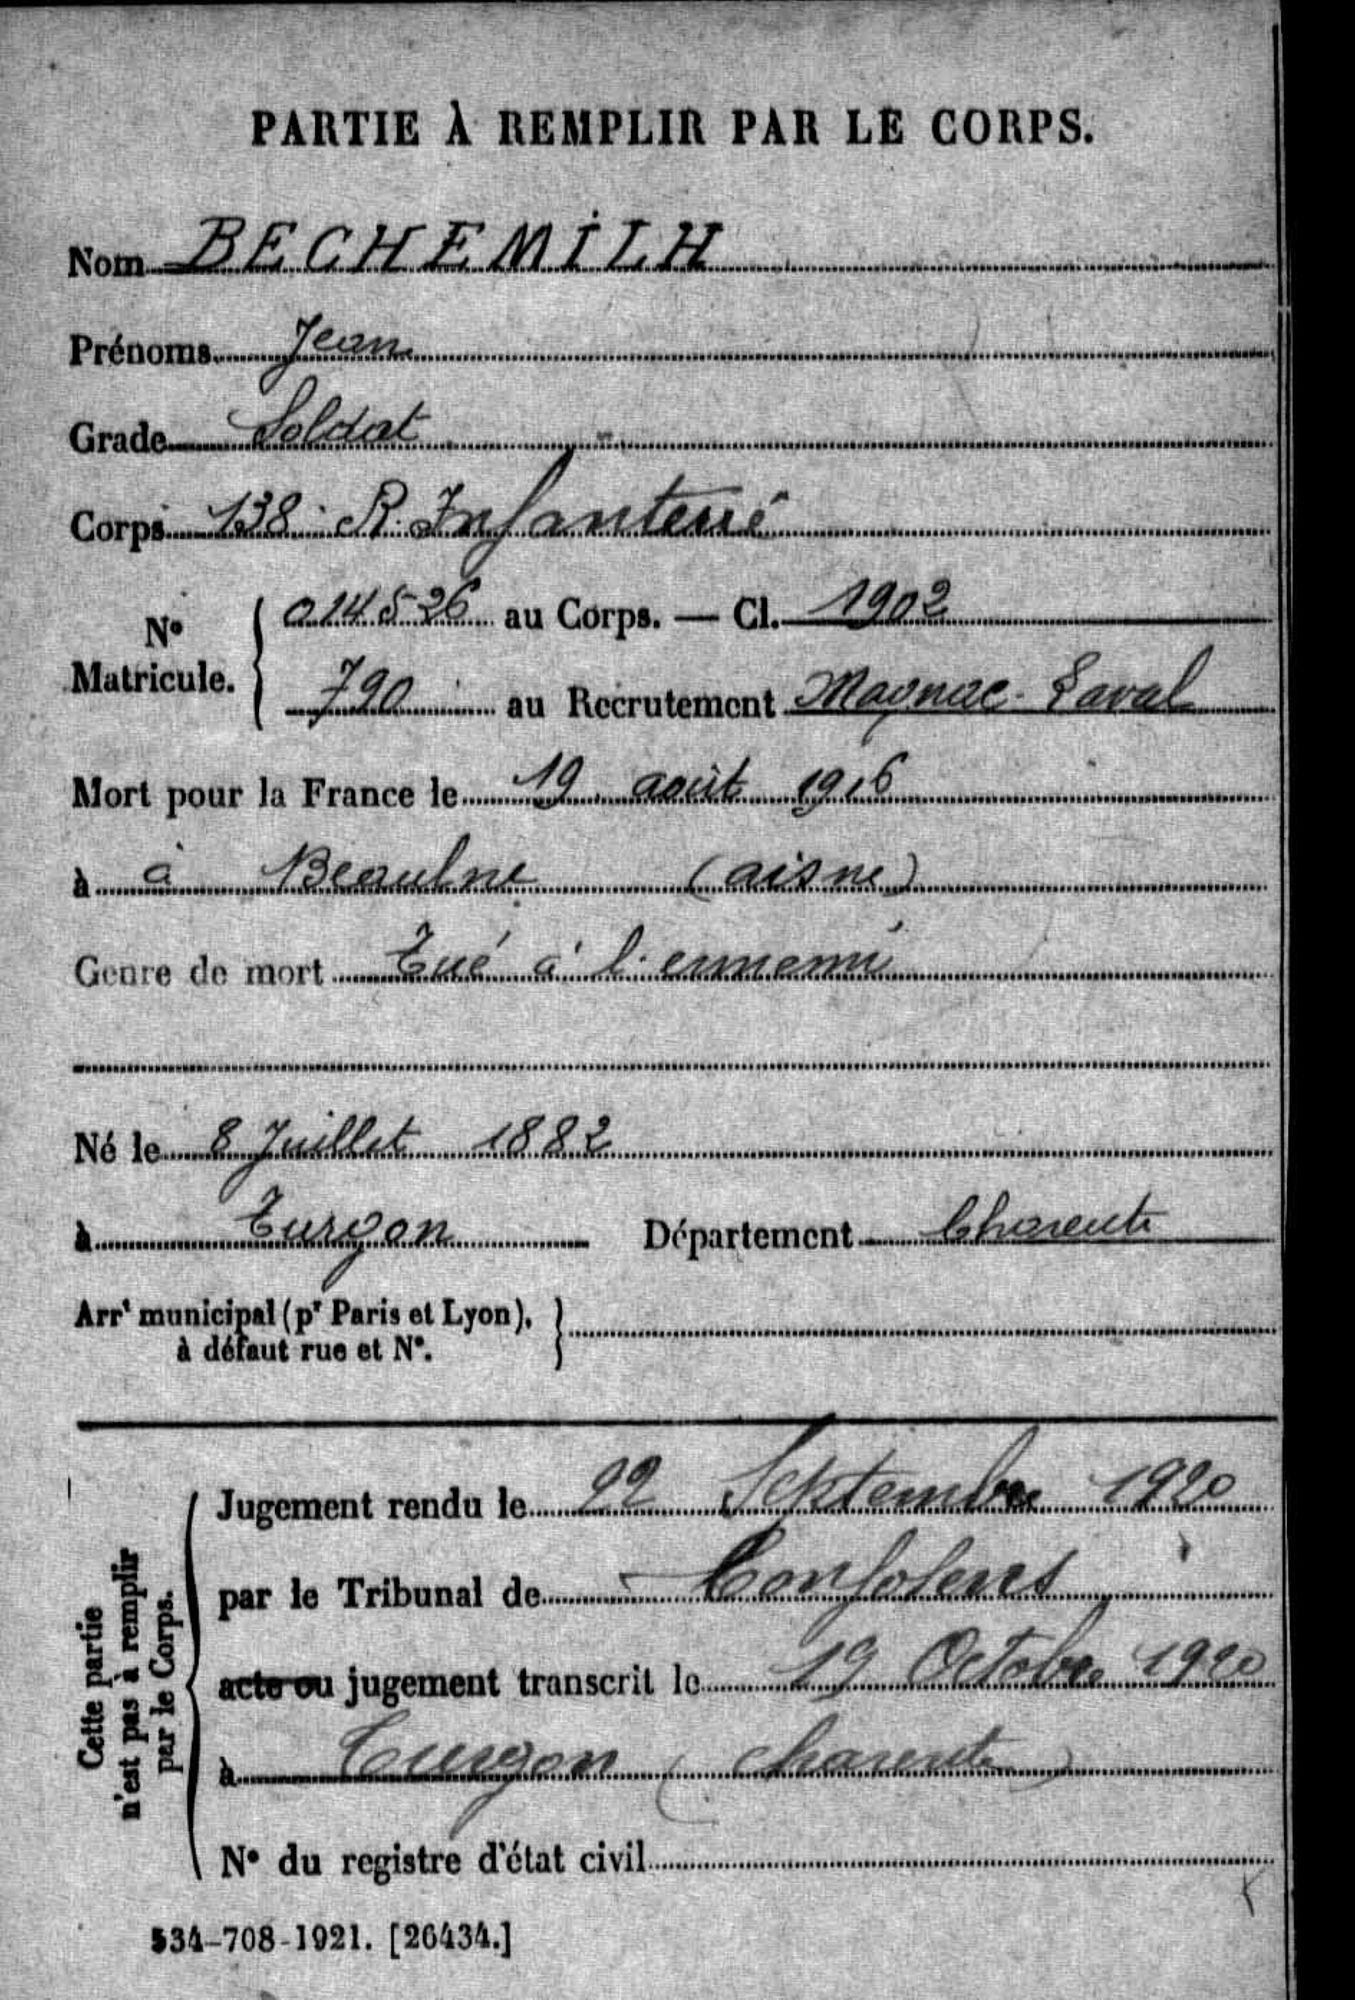 PARTIE À REMPLIR PAR LE CORPS.
Nom BECHEMILH
Prénoms Jean
Grade Soldat
Corps 138 R. Infanterie
No Matricule. { 014526 au Corps. — Cl. 1902
790 au Recrutement Magnac-Laval
Mort pour la France le 19 août 1916
à à Beaulne (aisne)
Genre de mort Tué à l'ennemi
Né le 8 Juillet 1882
à Turgon Département Charente
Arrt municipal (pr Paris et Lyon), à défaut rue et No.
Cette partie n'est pas à remplir par le Corps.
Jugement rendu le 22 Septembre 1920
par le Tribunal de Confolens
acte ou jugement transcrit le 19 Octobre 1920
à Turgon (charente)
No du registre d'état civil
534-708-1921. [26434.]